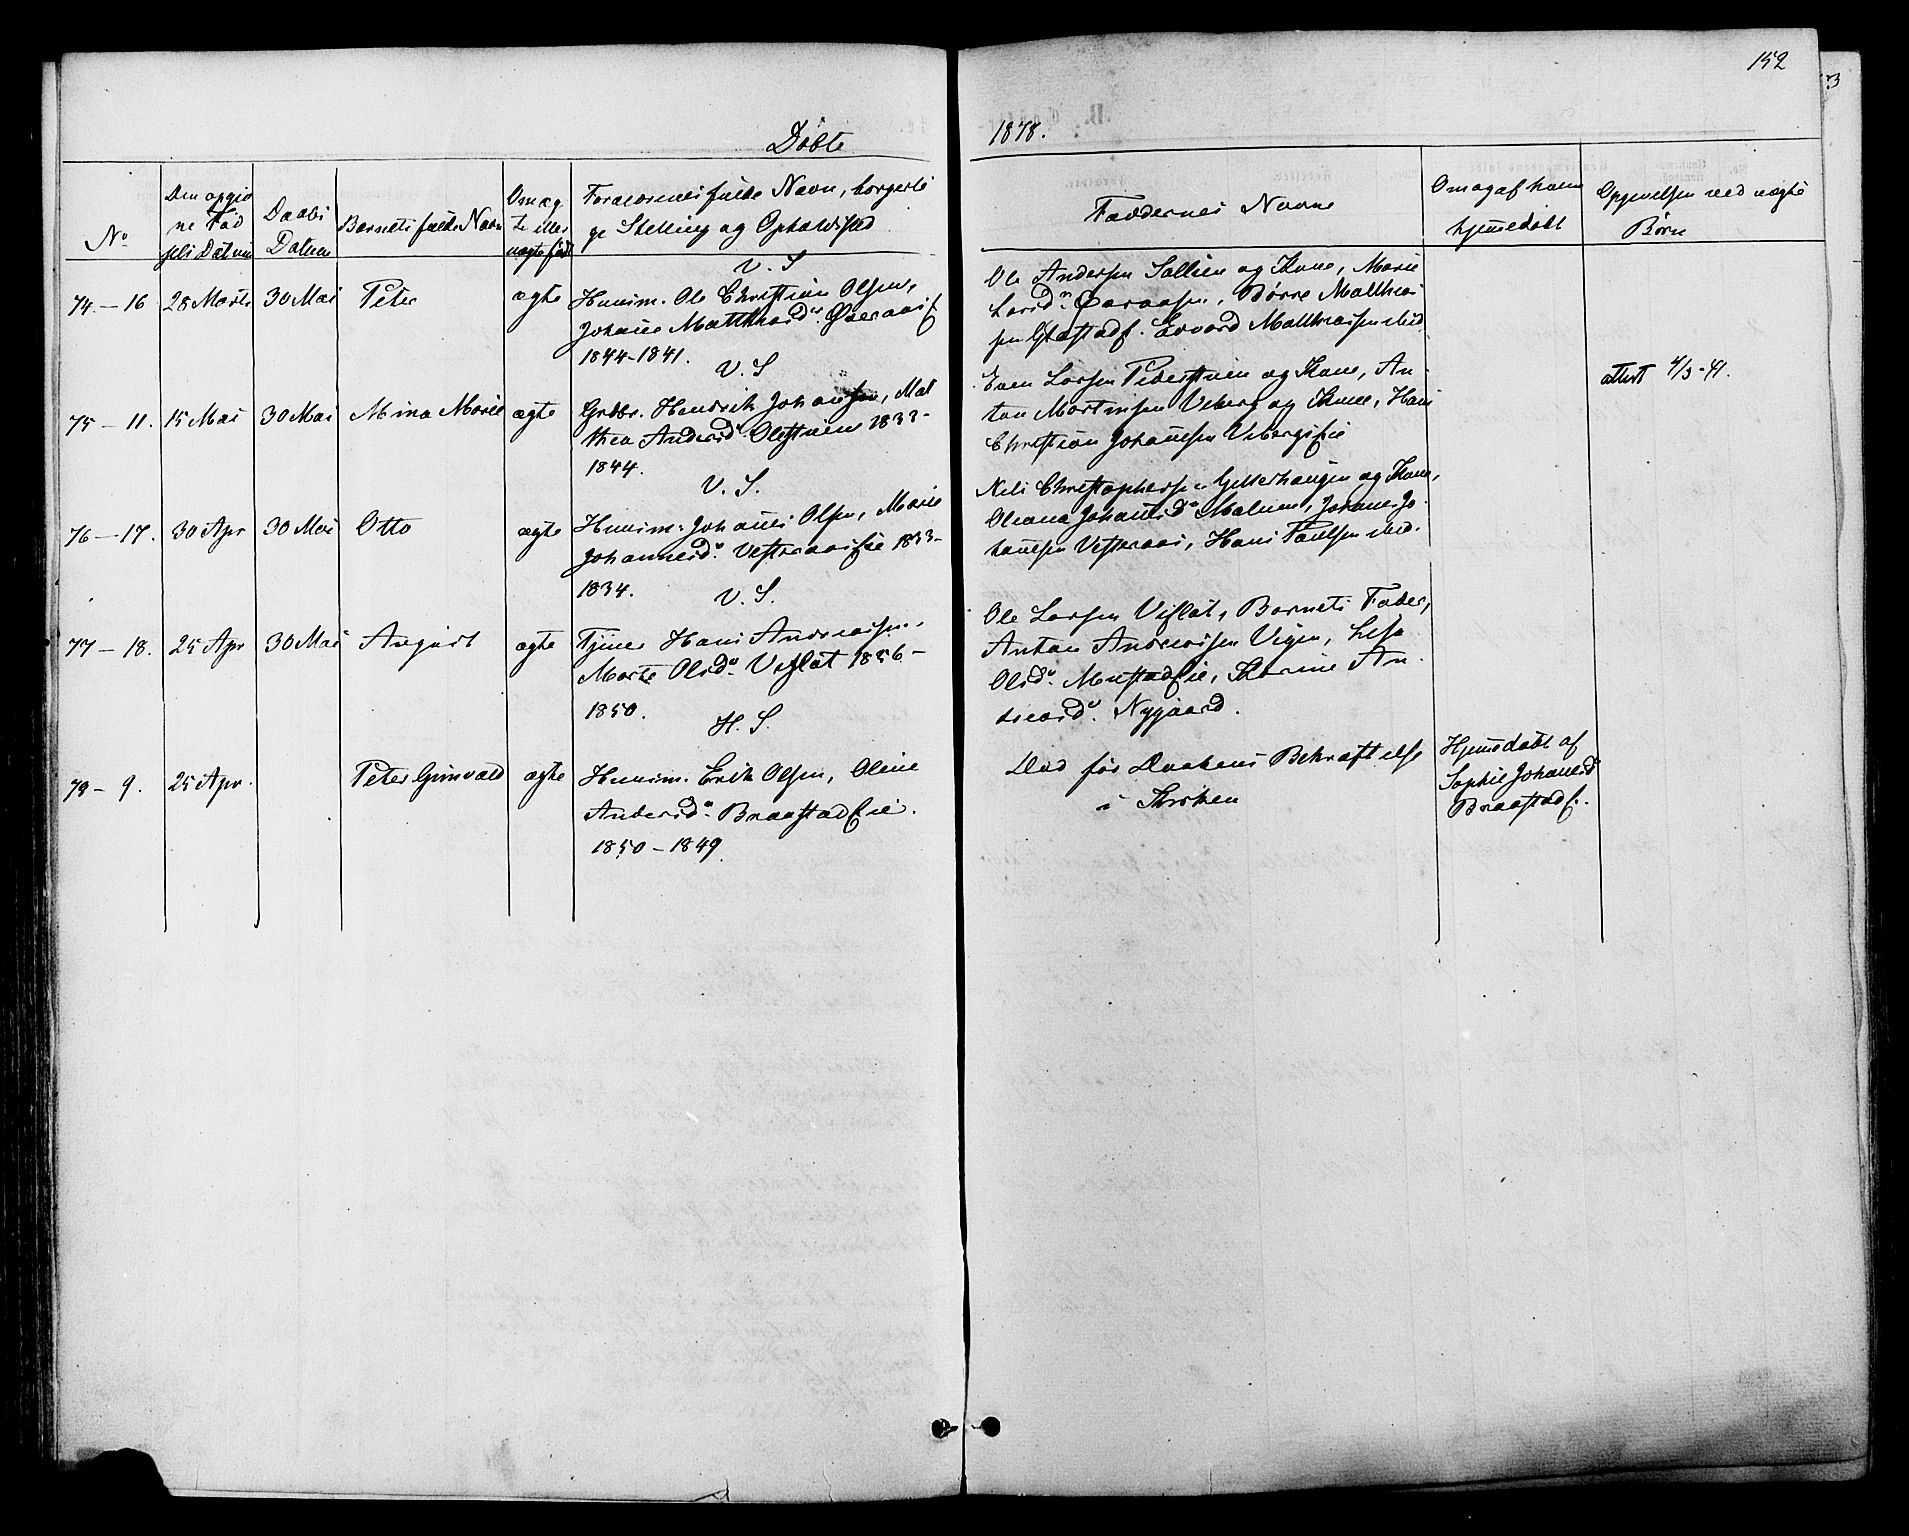 152
3
Døbte
1878.
No
Den opgiv
ne Fød
sels Datum
Daabs
Datum
Barnets fulde Navn
Om æg
te eller
uægte født
Forældrenes fulde Navn, borgerli
ge Stilling og Opholdssted
Faddernes Navne
Om og af hvem
hjemedøbt
Opgivelsen ved uægte
Børn
V. S
74 - 16 28 Marts 30 Mai Peter ægte Husm. Ole Christian Olsen,
Johane Matthiasd.
1844-1841.
Ole Andersen Sollien og Kone, Marie
Larsd. Børre Matthias
sen Edvard Matthiassen ibid.
V. S
75 - 11. 15 Mai 30 Mai Mina Marie ægte Grbr. Hendrik Johansen, Mat
thea Andersd. Olestuen 1833-
1844.
Even Larsen Pederstuen og Kone, An-
ton Martinsen Viberg og Kone, Hans
Christian Johansen Vibergseie
attest 4/3-41.
V. S.
76 - 17. 30 Apr 30 Mai Otto ægte Husm. Johanes Olsen, Marie
Johannesd. Vesteraaseie 1833-
1834.
Nils Christophersen og Kone,
Oleana Johanesd. Malum, Johanes Jo-
hanesen Vesteraas, Hans Paulsen ibid.
V. S.
77 - 18. 25 Apr 30 Mai August ægte Tjener Hans Andreassen,
Marte Olsd. Visflat 1856-
1850.
Ole Larsen Visflat, Barnets Fader,
Anton Andreassen Vigen, Lisa
Olsd. Mustadeie, Karine An-
dreasd. Nygaard.
H. S.
78 - 9. 25 Apr. Peter Grinvald ægte Husm. Erik Olsen, Oline
Andersd. Braastadeie.
1850 - 1849
Død før Daabens Bekræftelse
i Kirken
Hjemedøbt af
Sophie Johanesd
Braastad